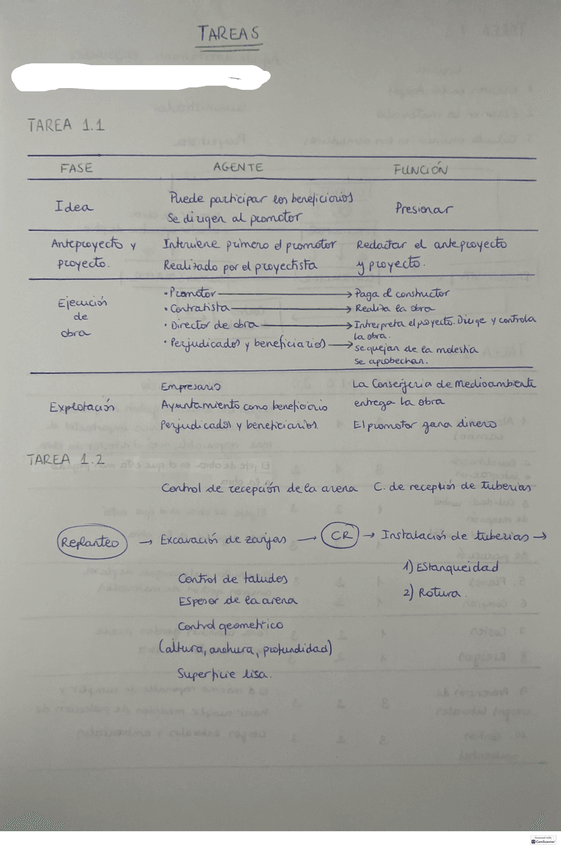 TAREAS
TAREA 1.1
FASE AGENTE FUNCIÓN
Idea
Puede participar los beneficiarios
Se dirigen al promotor
Presionar
Anteproyecto y
proyecto.
Interviene primero el promotor
Realizado por el proyectista
Redactar el anteproyecto
y proyecto.
Ejecución
de
obra
• Promotor → Paga al constructor
• Contratista → Realiza la obra
• Director de obra → Interpreta el proyecto. Dirige y controla
la obra.
• Perjudicados y beneficiarios → se quejan de la molestia
se aprobechan.
Explotación
Empresario
Ayuntamiento como beneficiario
Perjudicados y beneficiarios
La Consejería de Medioambiente
entrega la obra
El promotor gana dinero
TAREA 1.2
Control de recepción de la arena C. de recepción de tuberías
Replanteo → Excavación de zanjas → CR → Instalación de tuberías →
Control de taludes
Espesor de la arena
Control geometrico
(altura, anchura, profundidad)
Superficie lisa.
1) Estanqueidad
2) Rotura.
CamScanner